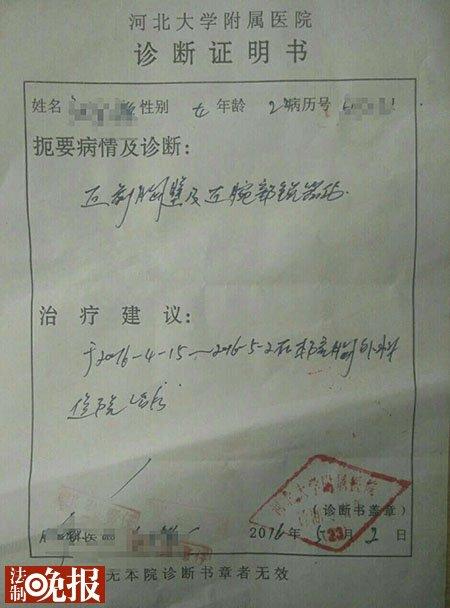 河北大学附属医院
诊断证明书
姓名 性别 女 年龄 2 病历号
扼要病情及诊断：
左前胸壁及左腕部锐器伤.
治疗建议：
于2016-4-15～2016-5-2在本院胸外科
住院治疗
河北大学附属医院
（诊断书盖章）
科医
2016年5月2日
无本院诊断书章者无效
法制晚报